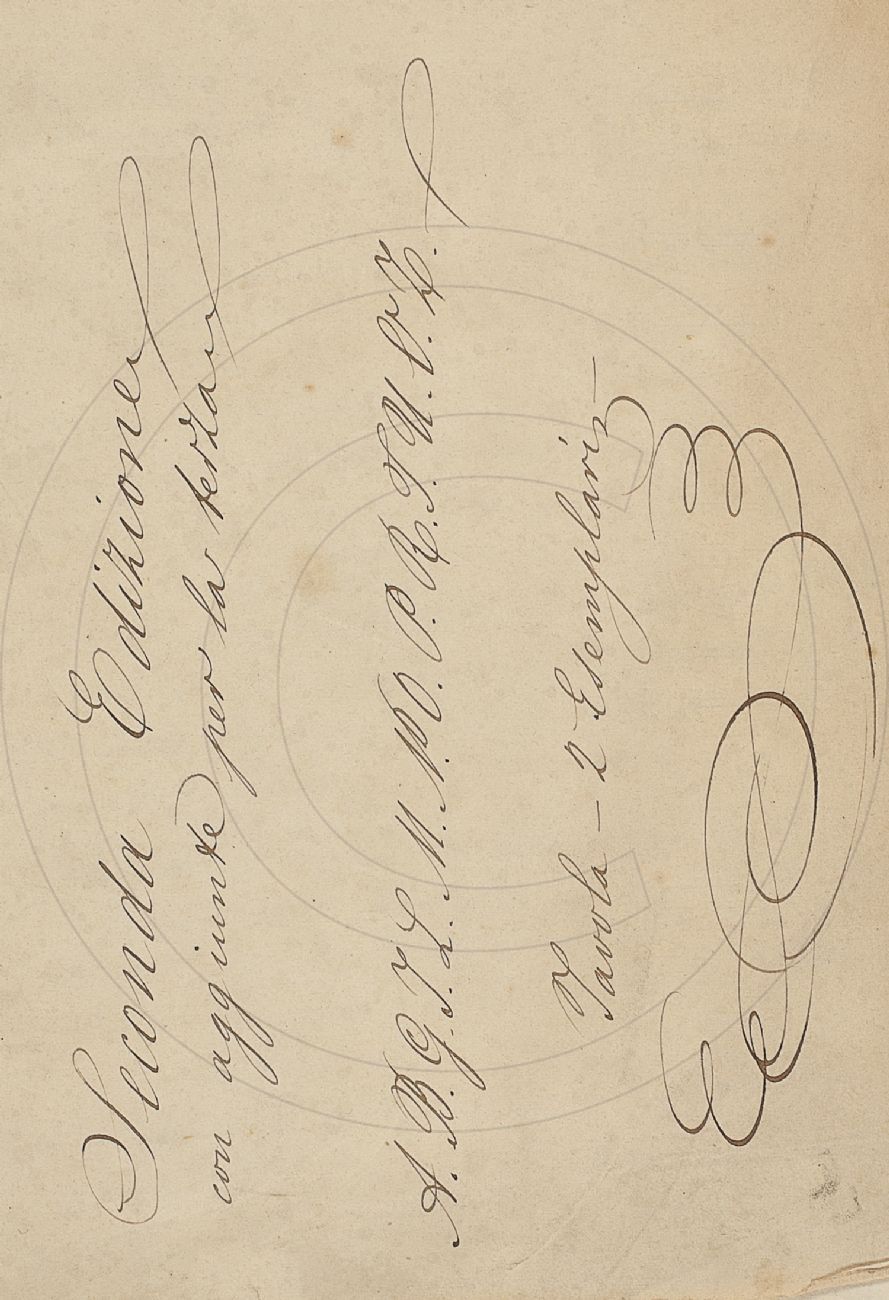 Seconda Edizione
con aggiunte per la terza
A. B. G. I. L. M. N. O. P. R. S. U. V. Z.
Tavola – 2 Esemplari –